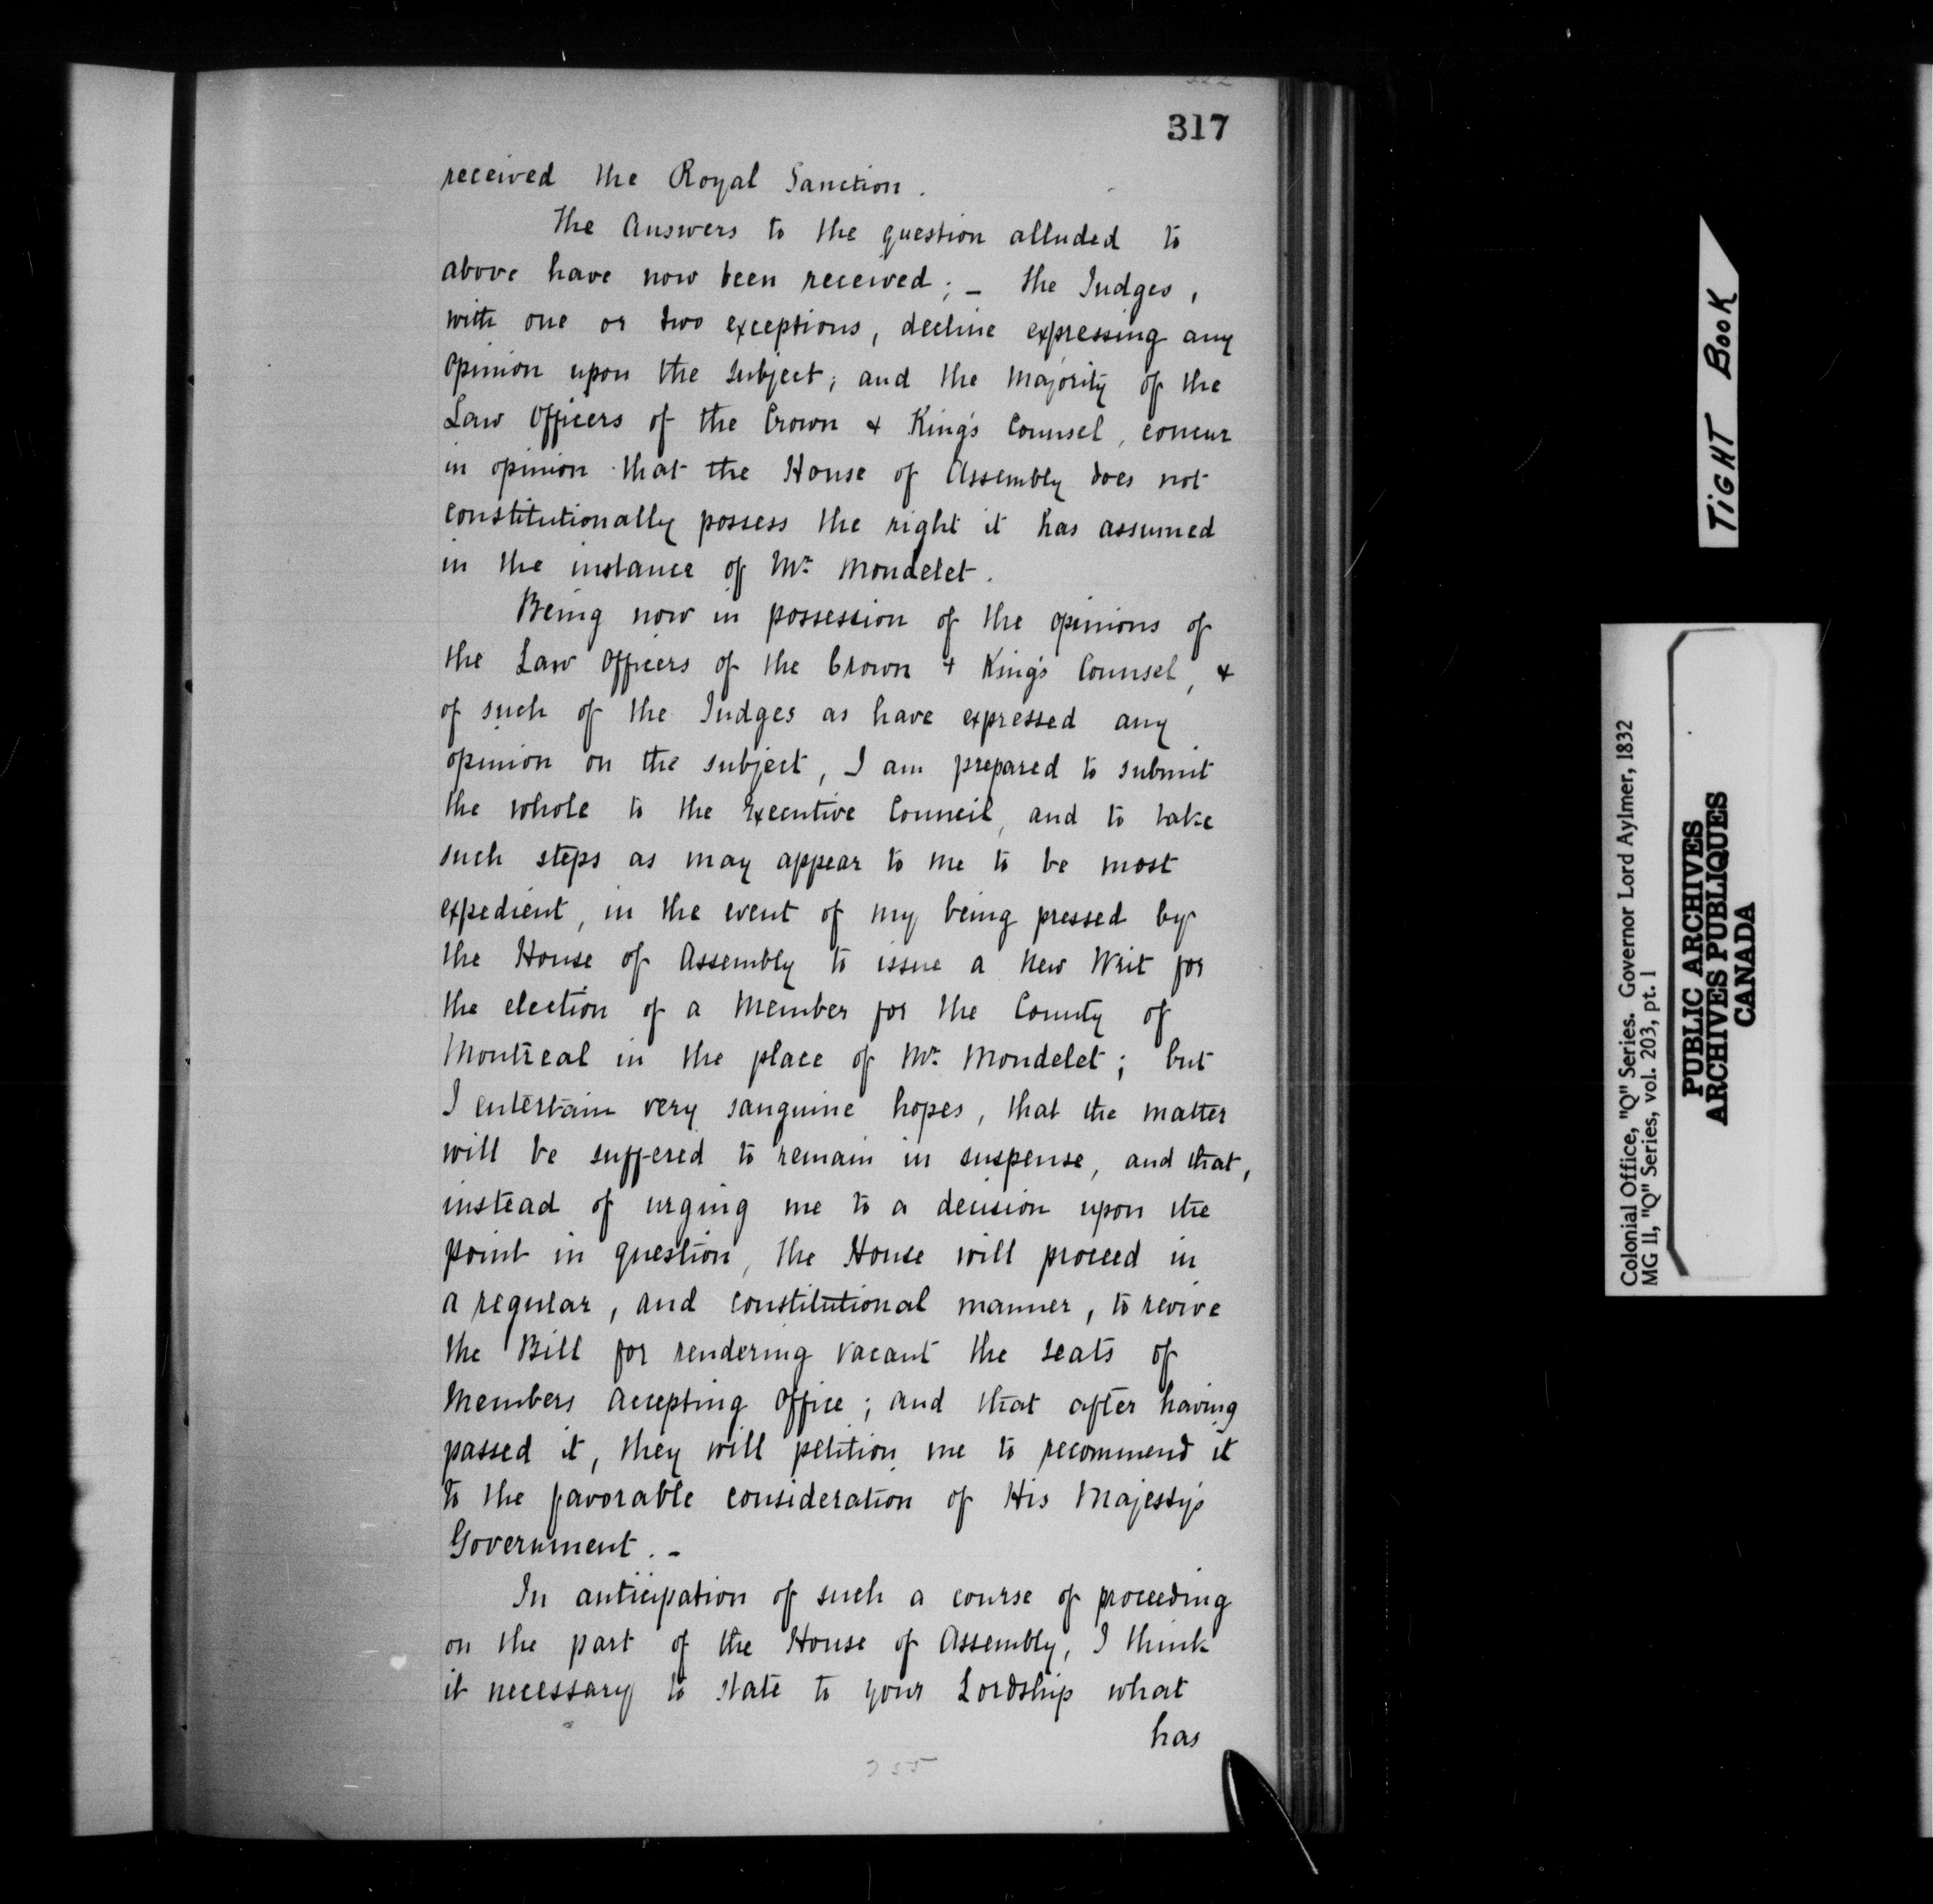 317
received the Royal Sanction.
The Answers to the question alluded to
above have now been received; – the Judges,
with one or two exceptions, decline expressing any
opinion upon the subject; and the Majority of the
Law Officers of the Crown & King's Counsel, concur
in opinion that the House of Assembly does not
constitutionally possess the right it has assumed
in the instance of Mr. Mondelet.
Being now in possession of the opinions of
the Law Officers of the Crown & King's Counsel, &
of such of the Judges as have expressed any
opinion on the subject, I am prepared to submit
the whole to the Executive Council, and to take
such steps as may appear to me to be most
expedient, in the event of my being pressed by
the House of Assembly to issue a New Writ for
the election of a Member for the County of
Montreal in the place of Mr. Mondelet; but
I entertain very sanguine hopes, that the matter
will be suffered to remain in suspense, and that,
instead of urging me to a decision upon the
point in question, the House will proceed in
a regular, and constitutional manner, to revive
the Bill for rendering vacant the seats of
Members Accepting Office; and that after having
passed it, they will petition me to recommend it
to the favorable consideration of His Majesty's
Government. –
In anticipation of such a course of proceeding
on the part of the House of Assembly, I think
it necessary to state to your Lordship what
has
255
TIGHT BOOK
Colonial Office, "Q" Series. Governor Lord Aylmer, 1832
MG 11, "Q" Series, vol. 203, pt. 1
PUBLIC ARCHIVES
ARCHIVES PUBLIQUES
CANADA